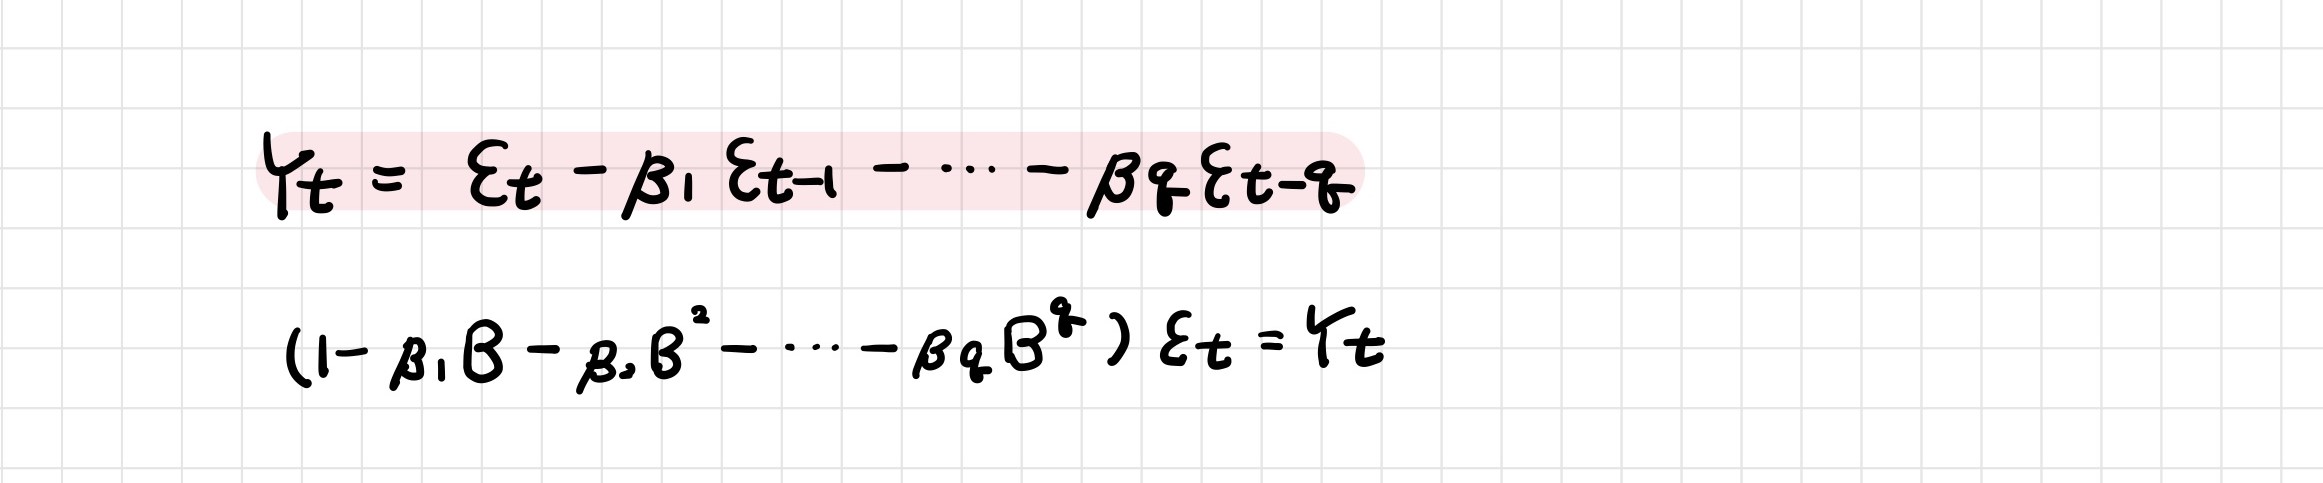 Yt = εt - β1 εt-1 - ... - βq εt-q
(1 - β1 B - β2 B² - ... - βq B^q) εt = Yt